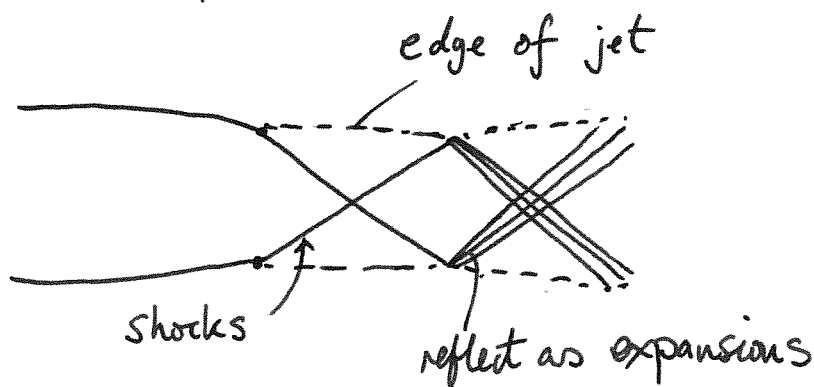 edge of jet
shocks
reflect as expansions